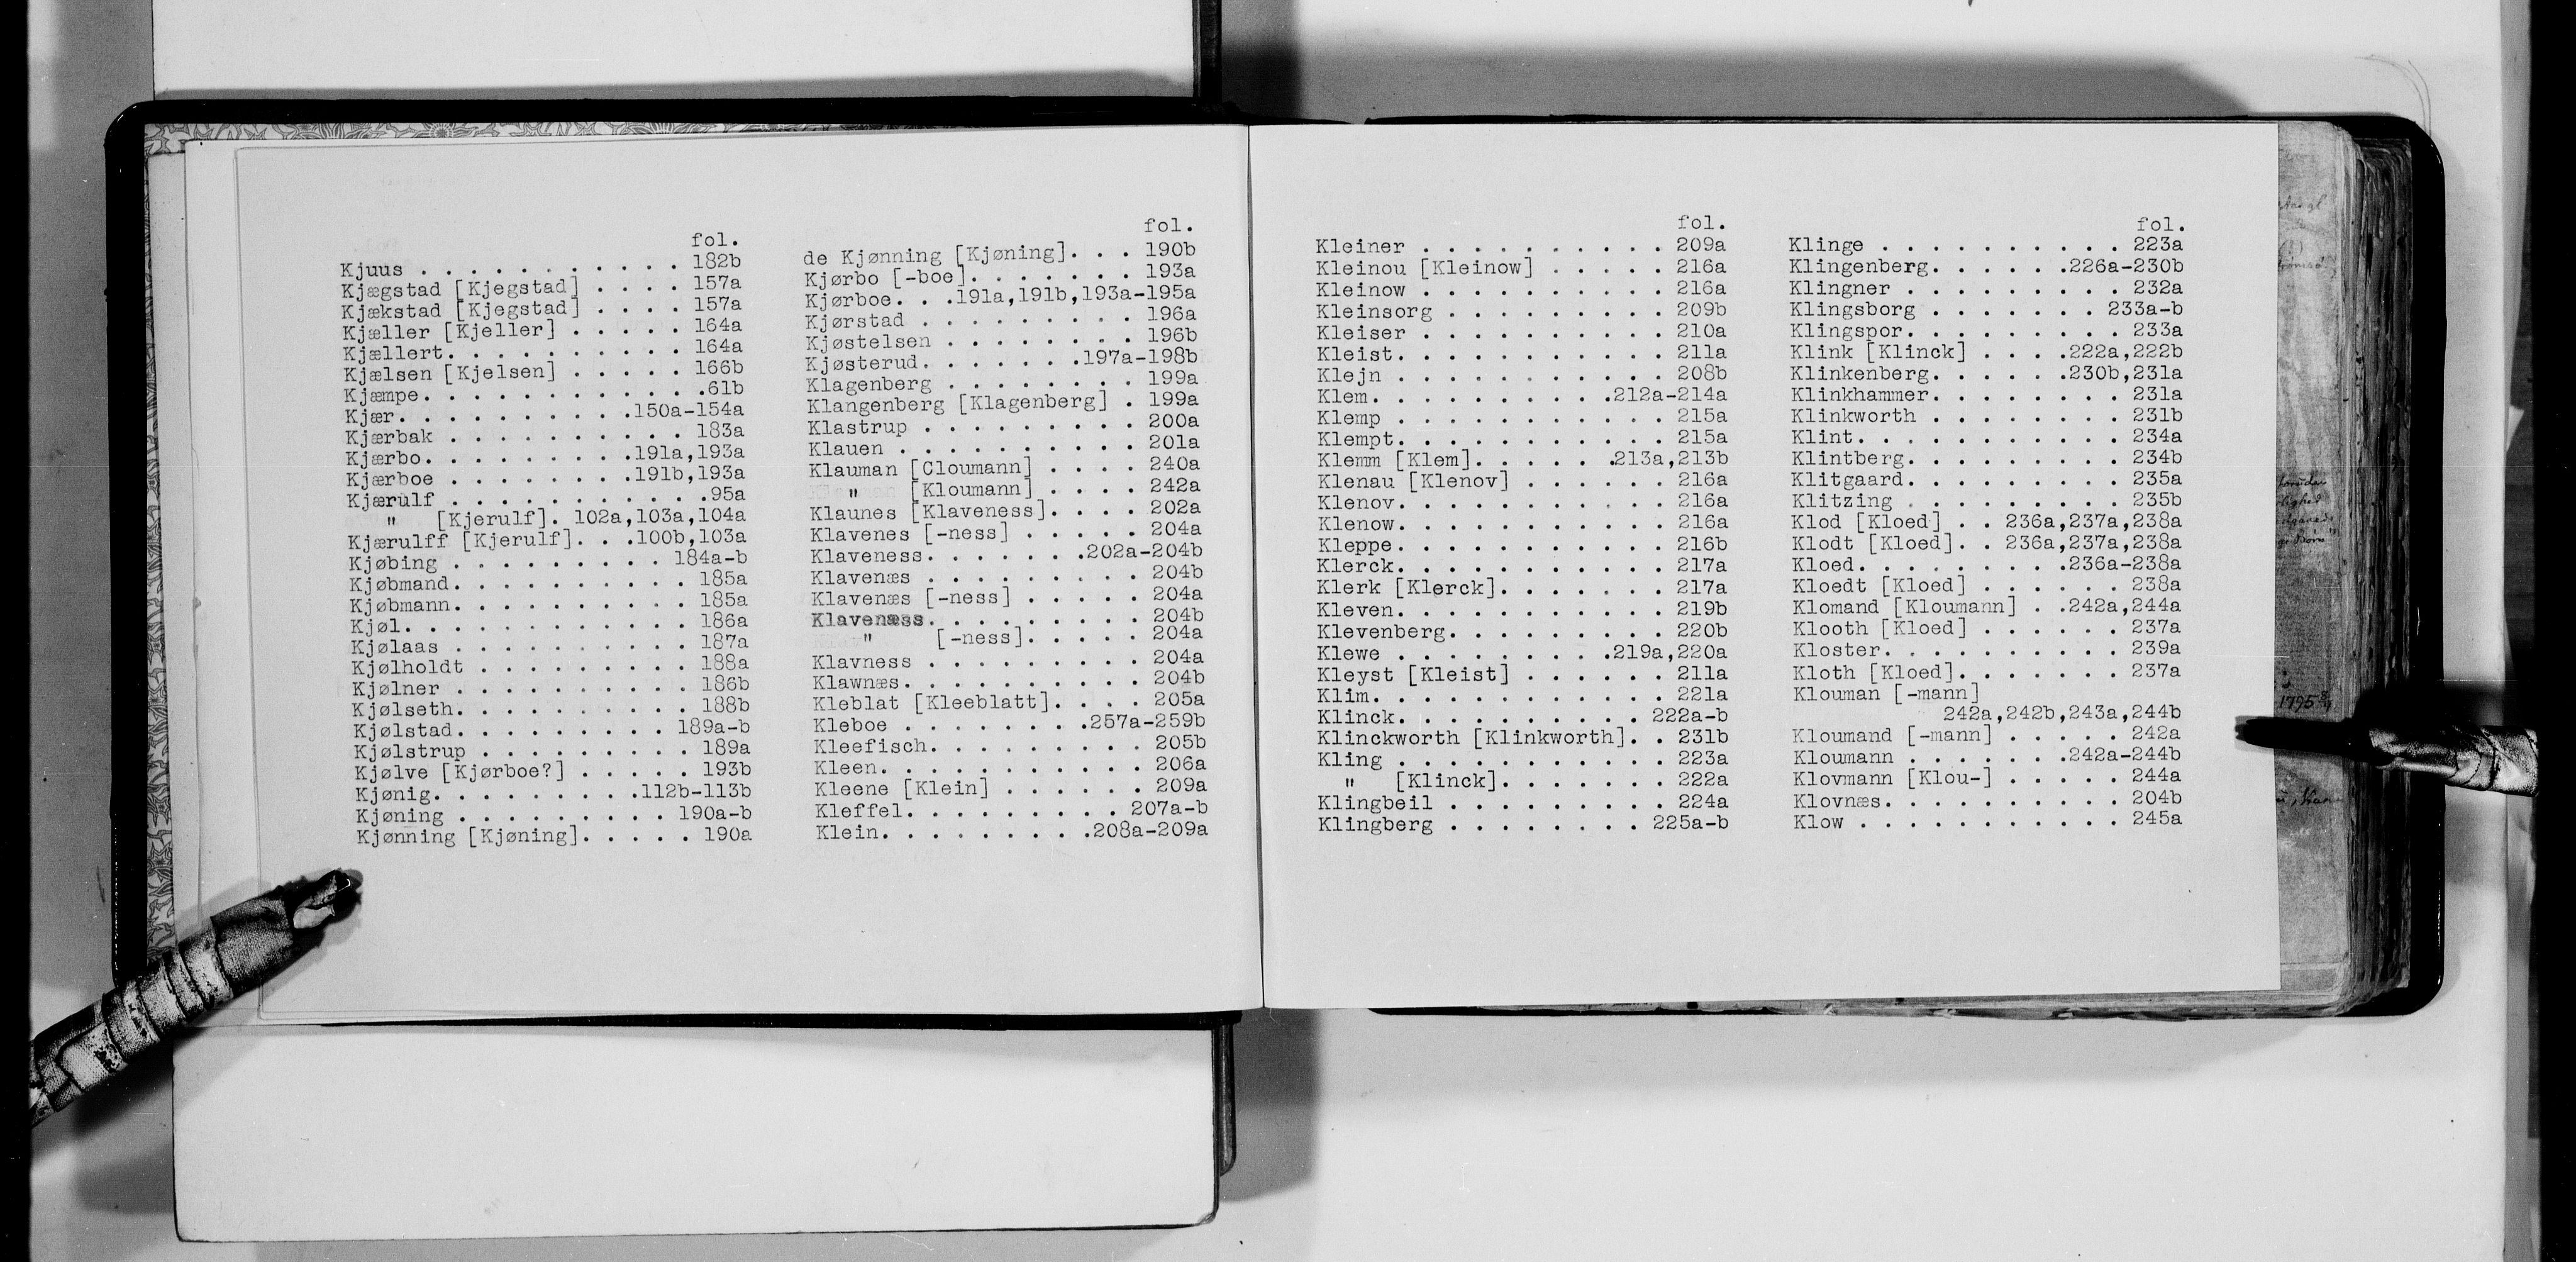 fol.
Kjuus . . . . . . . . . . . 182b
Kjægstad [Kjegstad] . . . . 157a
Kjækstad [Kjegstad] . . . . 157a
Kjæller [Kjeller] . . . . . 164a
Kjællert. . . . . . . . . . 164a
Kjælsen [Kjelsen] . . . . . 166b
Kjæmpe. . . . . . . . . . . .61b
Kjær. . . . . . . . . .150a-154a
Kjærbak . . . . . . . . . . 183a
Kjærbo. . . . . . . . .191a,193a
Kjærboe . . . . . . . .191b,193a
Kjærulf . . . . . . . . . . .95a
" [Kjerulf]. 102a,103a,104a
Kjærulff [Kjerulf]. . .100b,103a
Kjøbing . . . . . . . . . 184a-b
Kjøbmand. . . . . . . . . . 185a
Kjøbmann. . . . . . . . . . 185a
Kjøl. . . . . . . . . . . . 186a
Kjølaas . . . . . . . . . . 187a
Kjølholdt . . . . . . . . . 188a
Kjølner . . . . . . . . . . 186b
Kjølseth. . . . . . . . . . 188b
Kjølstad. . . . . . . . . 189a-b
Kjølstrup . . . . . . . . . 189a
Kjølve [Kjørboe?] . . . . . 193b
Kjønig. . . . . . . . .112b-113b
Kjøning . . . . . . . . . 190a-b
Kjønning [Kjøning]. . . . . 190a
fol.
de Kjønning [Kjøning]. . . 190b
Kjørbo [-boe]. . . . . . . 193a
Kjørboe. . .191a,191b,193a-195a
Kjørstad . . . . . . . . . 196a
Kjøstelsen . . . . . . . . 196b
Kjøsterud. . . . . . .197a-198b
Klagenberg . . . . . . . . 199a
Klangenberg [Klagenberg] . 199a
Klastrup . . . . . . . . . 200a
Klauen . . . . . . . . . . 201a
Klauman [Cloumann] . . . . 240a
" [Kloumann] . . . . 242a
Klaunes [Klaveness]. . . . 202a
Klavenes [-ness] . . . . . 204a
Klaveness. . . . . . .202a-204b
Klavenæs . . . . . . . . . 204b
Klavenæs [-ness] . . . . . 204a
Klavenæss. . . . . . . . . 204b
" [-ness]. . . . . 204a
Klavness . . . . . . . . . 204a
Klawnæs. . . . . . . . . . 204b
Kleblat [Kleeblatt]. . . . 205a
Kleboe . . . . . . . .257a-259b
Kleefisch. . . . . . . . . 205b
Kleen. . . . . . . . . . . 206a
Kleene [Klein] . . . . . . 209a
Kleffel. . . . . . . . . 207a-b
Klein. . . . . . . . .208a-209a
fol.
Kleiner . . . . . . . . . . 209a
Kleinou [Kleinow] . . . . . 216a
Kleinow . . . . . . . . . . 216a
Kleinsorg . . . . . . . . . 209b
Kleiser . . . . . . . . . . 210a
Kleist. . . . . . . . . . . 211a
Klejn . . . . . . . . . . . 208b
Klem. . . . . . . . . .212a-214a
Klemp . . . . . . . . . . . 215a
Klempt. . . . . . . . . . . 215a
Klemm [Klem]. . . . . .213a,213b
Klenau [Klenov] . . . . . . 216a
Klenov. . . . . . . . . . . 216a
Klenow. . . . . . . . . . . 216a
Kleppe. . . . . . . . . . . 216b
Klerck. . . . . . . . . . . 217a
Klerk [Klerck]. . . . . . . 217a
Kleven. . . . . . . . . . . 219b
Klevenberg. . . . . . . . . 220b
Klewe . . . . . . . . .219a,220a
Kleyst [Kleist] . . . . . . 211a
Klim. . . . . . . . . . . . 221a
Klinck. . . . . . . . . . 222a-b
Klinckworth [Klinkworth]. . 231b
Kling . . . . . . . . . . . 223a
" [Klinck]. . . . . . . 222a
Klingbeil . . . . . . . . . 224a
Klingberg . . . . . . . . 225a-b
fol.
Klinge . . . . . . . . . . 223a
Klingenberg. . . . . .226a-230b
Klingner . . . . . . . . . 232a
Klingsborg . . . . . . . 233a-b
Klingspor. . . . . . . . . 233a
Klink [Klinck] . . . .222a,222b
Klinkenberg. . . . . .230b,231a
Klinkhammer. . . . . . . . 231a
Klinkworth . . . . . . . . 231b
Klint. . . . . . . . . . . 234a
Klintberg. . . . . . . . . 234b
Klitgaard. . . . . . . . . 235a
Klitzing . . . . . . . . . 235b
Klod [Kloed] . . 236a,237a,238a
Klodt [Kloed]. . 236a,237a,238a
Kloed. . . . . . . . .236a-238a
Kloedt [Kloed] . . . . . . 238a
Klomand [Kloumann] . .242a,244a
Klooth [Kloed] . . . . . . 237a
Kloster. . . . . . . . . . 239a
Kloth [Kloed]. . . . . . . 237a
Klouman [-mann]
242a,242b,243a,244b
Kloumand [-mann] . . . . . 242a
Kloumann . . . . . . .242a-244b
Klovmann [Klou-] . . . . . 244a
Klovnæs. . . . . . . . . . 204b
Klow . . . . . . . . . . . 245a
1795